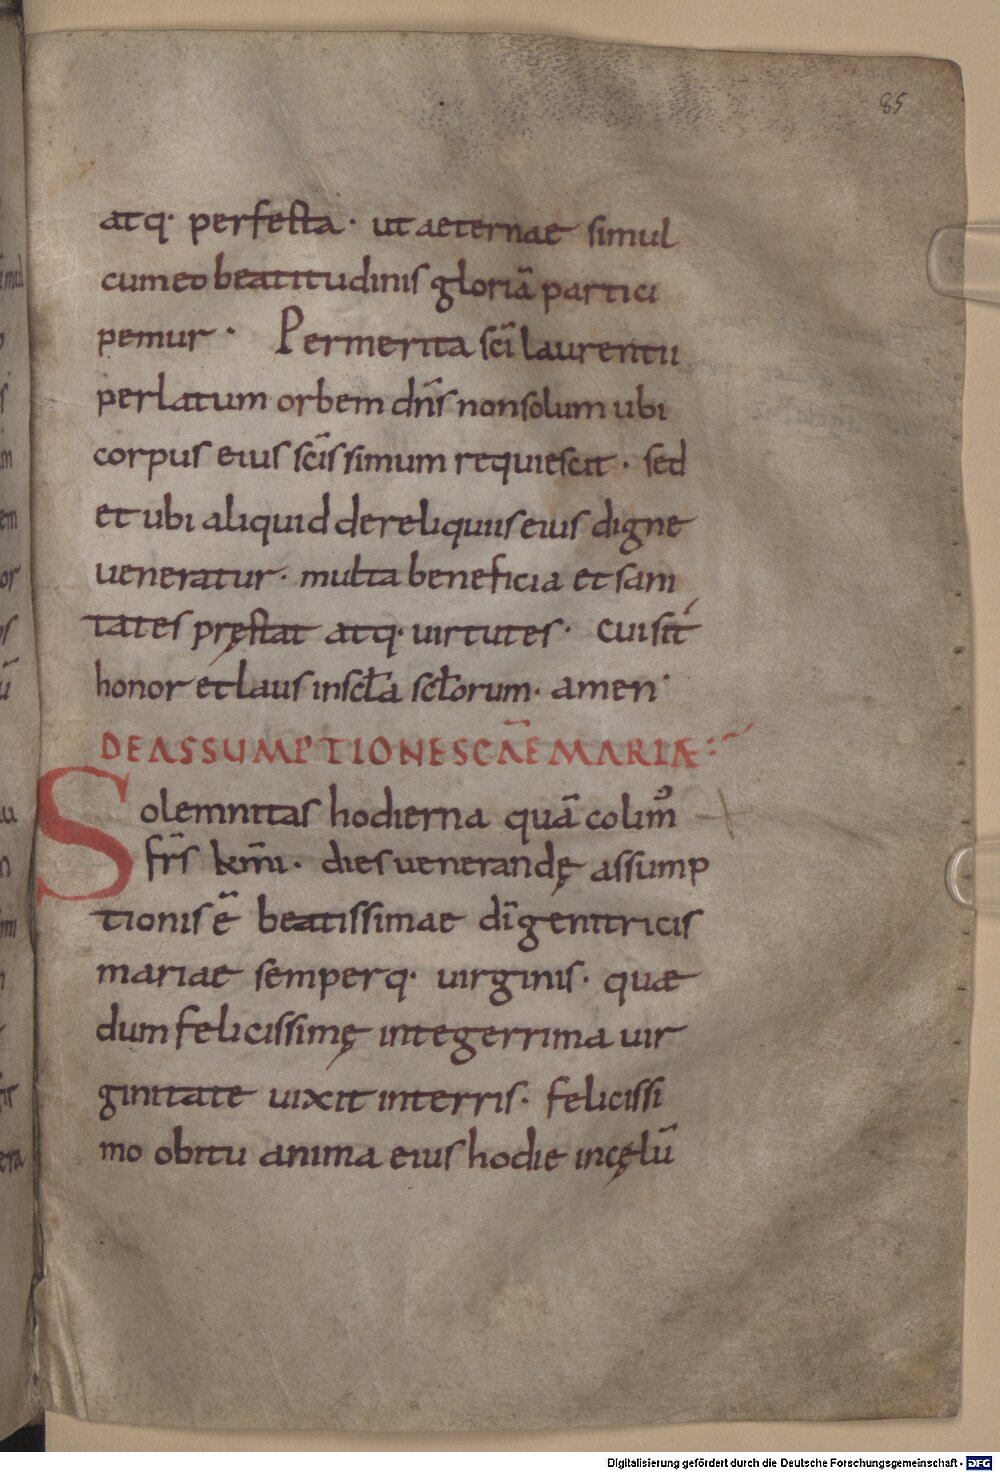 85
atq· perfecta· ut aeternae simul
cum eo beatitudinis gloriā partici
pemur· Per merita scī laurentii
per latum orbem dn̄s non solum ubi
corpus eius scīssimum requiescit· sed
et ubi aliquid de reliquiis eius digne
ueneratur· multa beneficia et sani
tates pręstat atq· uirtutes· Cui sit
honor et laus in scl̄a scl̄orum· amen·
DE ASSUMPTIONE SCĀE MARIÆ
Solemnitas hodierna quā colim᾿
fr̄s km̄i· dies uenerandę assump
tionis ē beatissimae dī genitricis
mariae semperq· uirginis· quae
dum felicissimę integerrima uir
ginitate uixit in terris· felicissi
mo obitu anima eius hodie in cęlū
Digitalisierung gefördert durch die Deutsche Forschungsgemeinschaft - DFG